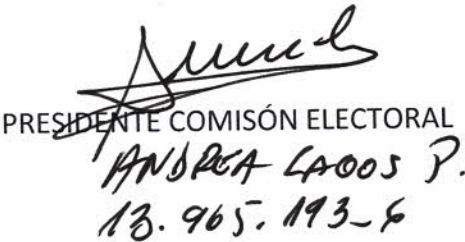 PRESIDENTE COMISÓN ELECTORAL
ANDREA LAGOS P.
13.965.193-6